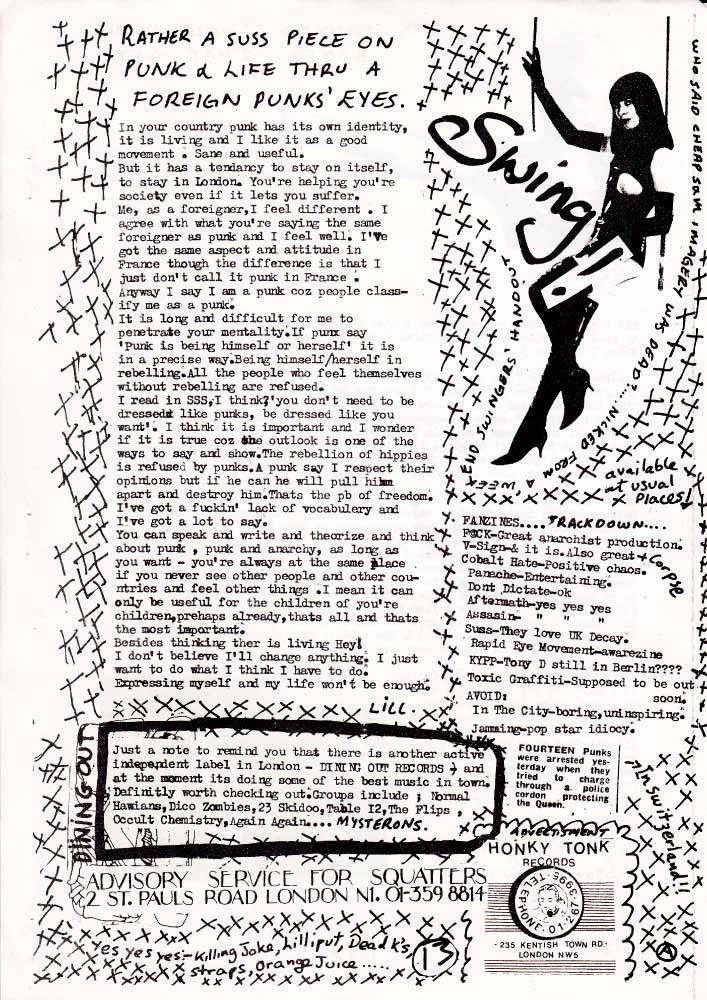 RATHER A SUSS PIECE ON
PUNK & LIFE THRU A
FOREIGN PUNKS' EYES.
In your country punk has its own identity,
it is living and I like it as a good
movement . Sane and useful.
But it has a tendancy to stay on itself,
to stay in London. You're helping you're
society even if it lets you suffer.
Me, as a foreigner,I feel different . I
agree with what you're saying the same
foreigner as punk and I feel well. I've
got the same aspect and attitude in
France though the difference is that I
just don't call it punk in France .
Anyway I say I am a punk coz people class-
ify me as a punk.
It is long and difficult for me to
penetrate your mentality.If punx say
'Punk is being himself or herself' it is
in a precise way.Being himself/herself in
rebelling.All the people who feel themselves
without rebelling are refused.
I read in SSS,I think?'you don't need to be
dressed like punks, be dressed like you
want'. I think it is important and I wonder
if it is true coz the outlook is one of the
ways to say and show.The rebellion of hippies
is refused by punks.A punk say I respect their
opinions but if he can he will pull him
apart and destroy him.Thats the pb of freedom.
I've got a fuckin' lack of vocabulery and
I've got a lot to say.
You can speak and write and theorize and think
about punk , punk and anarchy, as long as
you want - you're always at the same place .
if you never see other people and other cou-
ntries and feel other things .I mean it can
only be useful for the children of you're
children,prehaps already,thats all and thats
the most important.
Besides thinking ther is living Hey!
I don't believe I'll change anything. I just
want to do what I think I have to do.
Expressing myself and my life won't be enough.
LILL.
Swing!
WHO SAID CHEAP S&M IMAGERY WAS DEAD?... NICKED FROM A WEEK END SWINGERS' HANDOUT
available
at usual
Places!
FANZINES.... TRACKDOWN....
F@CK-Great anarchist production.
V-Sign-& it is.Also great + Corpse
Cobalt Hate-Positive chaos.
Panache-Entertaining.
Dont Dictate-ok
Aftermath-yes yes yes
Assasin- " " "
Suss-They love UK Decay.
Rapid Eye Movement-awarezine
KYPP-Tony D still in Berlin????
Toxic Graffiti-Supposed to be out
soon.
AVOID:
In The City-boring,uninspiring.
Jamming-pop star idiocy.
DINING OUT
Just a note to remind you that there is another active
independent label in London - DINING OUT RECORDS , and
at the moment its doing some of the best music in town.
Definitly worth checking out.Groups include ; Normal
Hawians,Dico Zombies,23 Skidoo,Table I2,The Flips ,
Occult Chemistry,Again Again.... MYSTERONS.
FOURTEEN Punks
were arrested yes-
terday when they
tried to charge
through a police
cordon protecting
the Queen.
In Switzerland!!
ADVISORY SERVICE FOR SQUATTERS
2 ST. PAULS ROAD LONDON N1. 01-359 8814
ADVERTISMENT
HONKY TONK
RECORDS
TELEPHONE 01-
3995
- 235 KENTISH TOWN RD.-
LONDON NW5
yes yes yes:- Killing Joke, Lilliput, Dead K's,
straps, Orange Juice.....
13
A